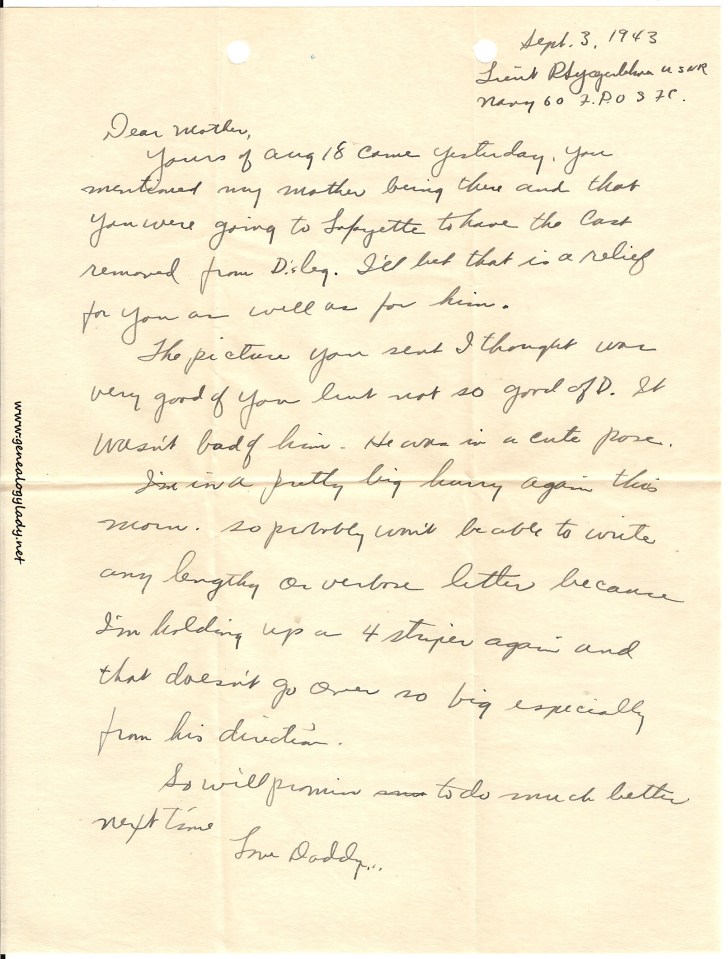 Sept. 3, 1943
Lieut USNR
Navy 60 F.P.O
Dear Mother,
Yours of Aug 18 came yesterday. You
mentioned my mother being there and that
you were going to Lafayette to have the cast
removed from D.'s leg. I'll bet that is a relief
for you as well as for him.
The picture you sent I thought was
very good of you but not so good of D. It
wasn't bad of him. He was in a cute pose.
I'm in a pretty big hurry again this
morn. so probably won't be able to write
any lengthy or verbose letter because
I'm holding up a 4 striper again and
that doesn't go over so big especially
from his direction.
So will promise to do much better
next time
Love Daddy...
www.genealogylady.net